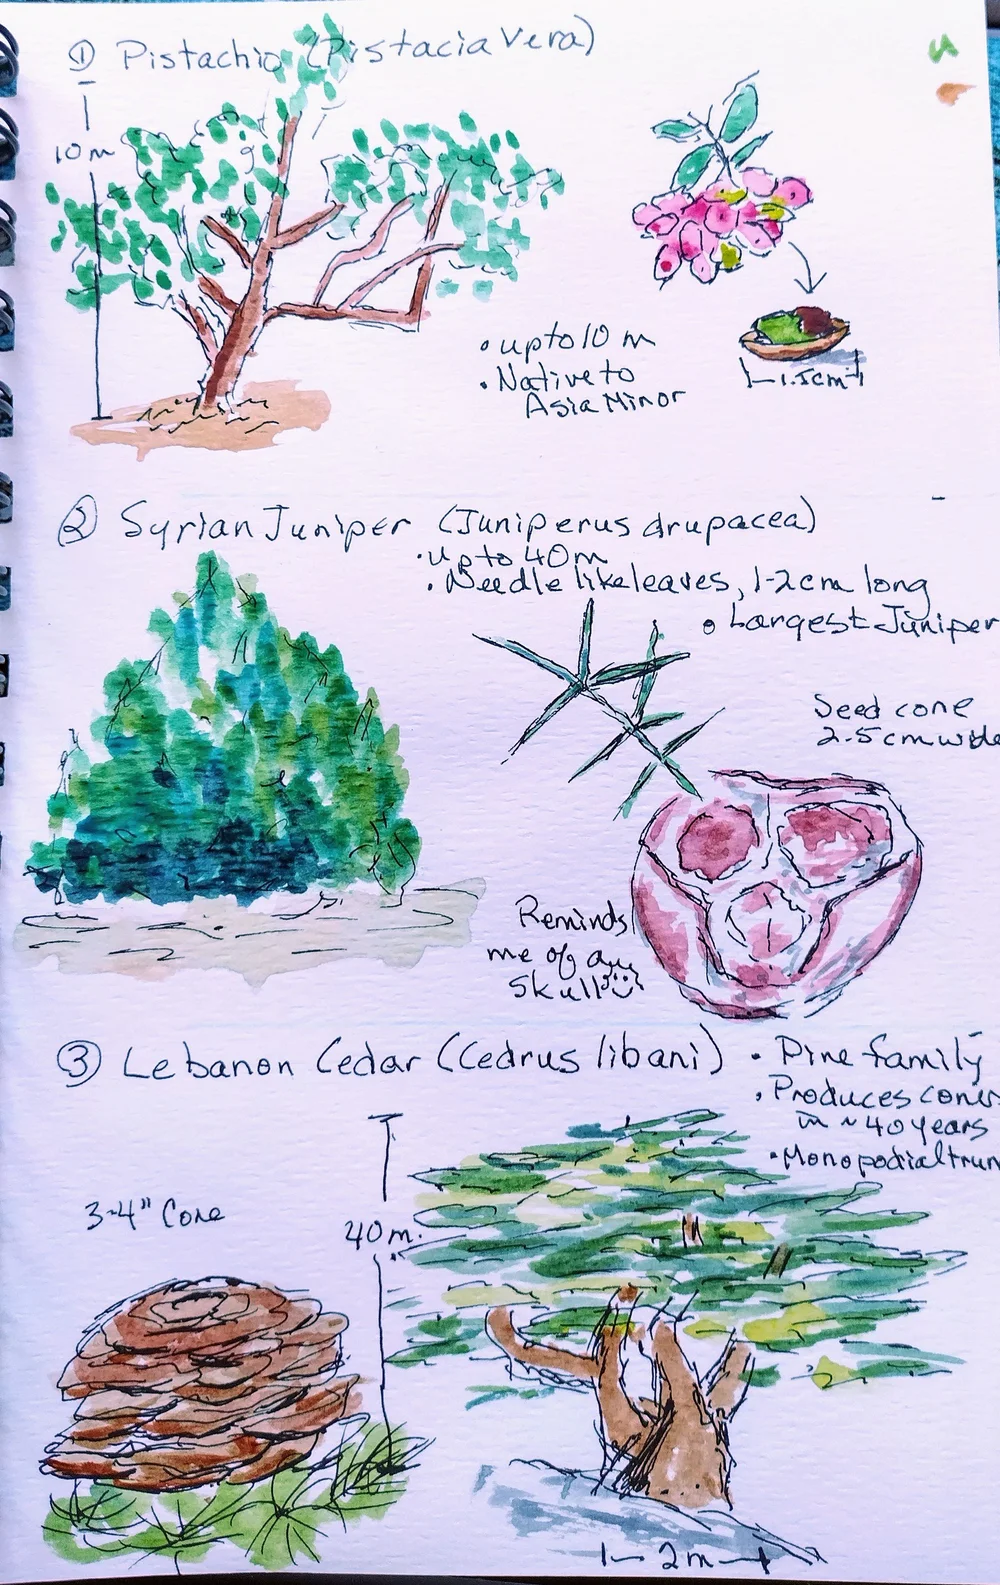 ① Pistachio (Pistacia Vera)
10m
• up to 10 m
• Native to
Asia Minor
1.5cm
② Syrian Juniper (Juniperus drupacea)
• up to 40m
• Needle like leaves, 1-2cm long
• Largest Juniper
Seed cone
2.5cm wide
Reminds
me of a
skull
③ Lebanon Cedar (Cedrus libani)
• Pine family
• Produces cones
in ~40 years
• Monopodial trun
3-4" Cone
40m.
2m